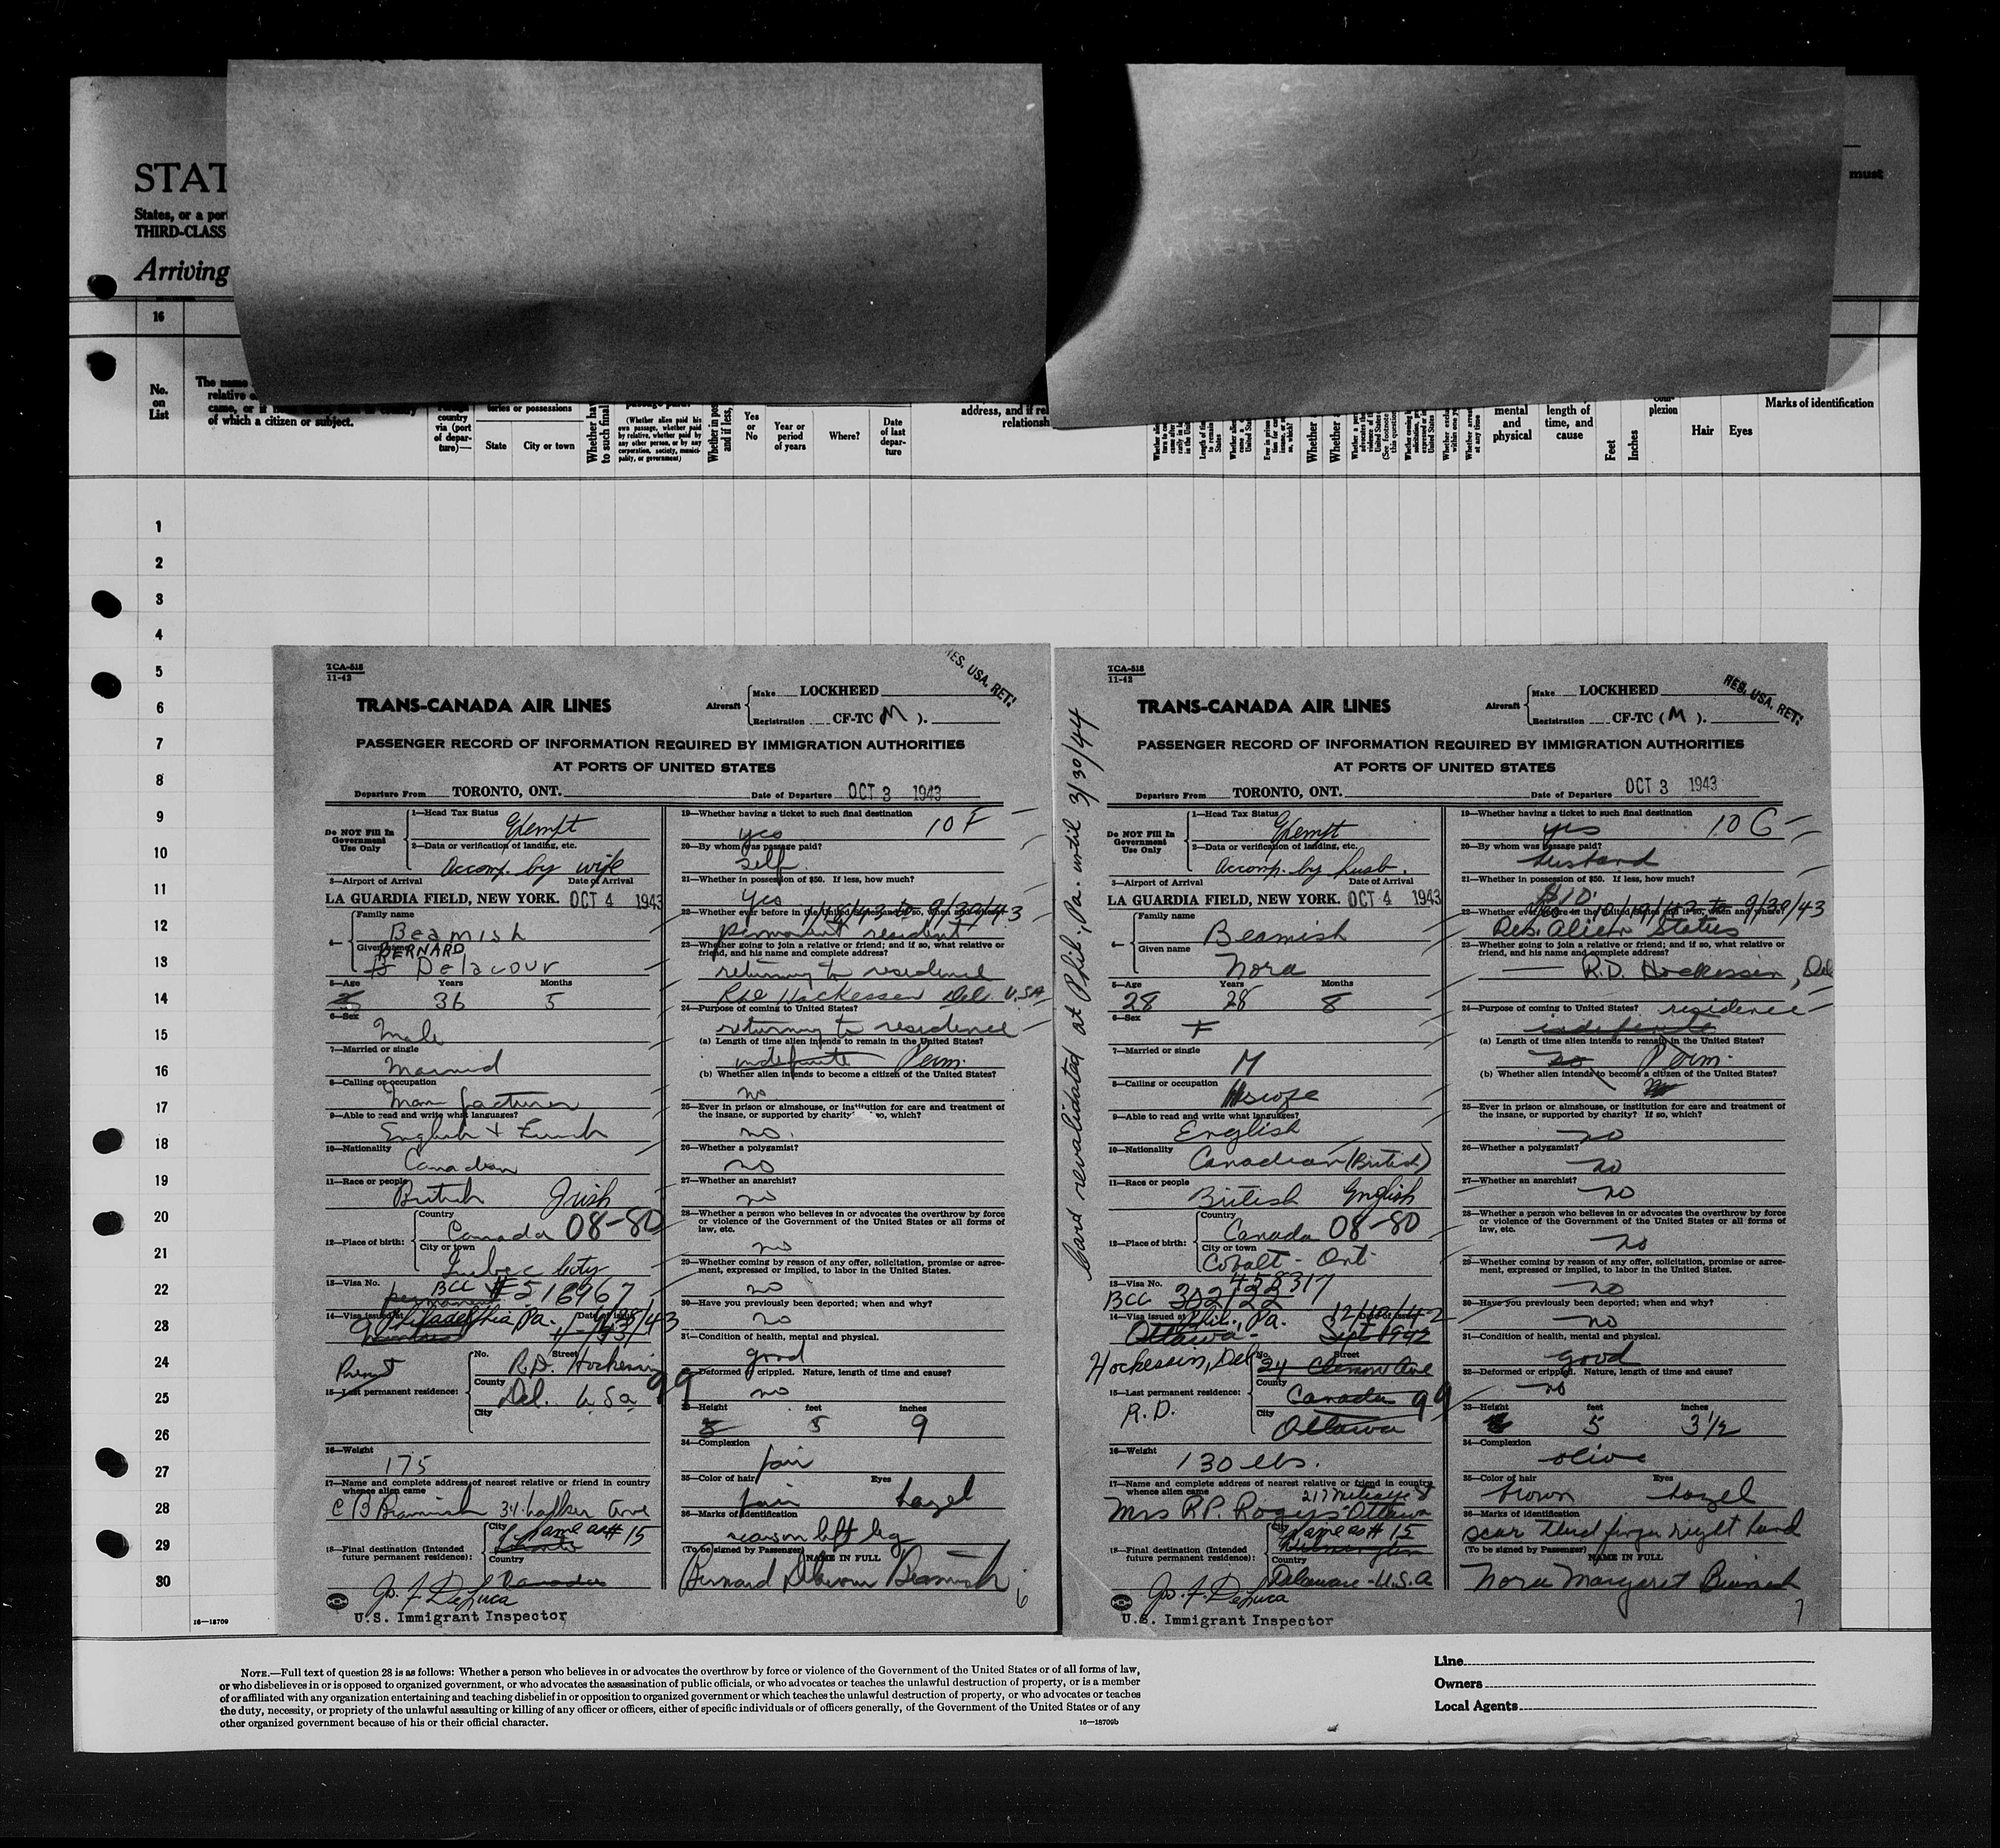 STAT
States, or a por
THIRD-CLASS
Arriving
must
16
No.
on
List
The name
relative o
of which a citizen or subject.
country
via (port
of depar-
ture)—
State
City or town
(Whether alien paid his
own passage, whether paid
by relative, whether paid by
any other person, or by any
corporation, society, munici-
pality, or government)
Yes
or
No
Year or
period
of years
Where?
Date
of last
depar-
ture
address, and if rel
relationsh
mental
and
physical
length of
time, and
cause
Feet
Inches
plexion
Hair
Eyes
Marks of identification
1
2
3
4
5
6
7
8
9
10
11
12
13
14
15
16
17
18
19
20
21
22
23
24
25
26
27
28
29
30
TCA-518
11-42
TRANS-CANADA AIR LINES
Aircraft
Make LOCKHEED
Registration CF-TC M ).
RES. USA. RET:
PASSENGER RECORD OF INFORMATION REQUIRED BY IMMIGRATION AUTHORITIES
AT PORTS OF UNITED STATES
Departure From TORONTO, ONT. Date of Departure OCT 3 1943
Do NOT Fill In
Government
Use Only
1—Head Tax Status
Exempt
2—Data or verification of landing, etc.
Accomp. by wife
3—Airport of Arrival Date of Arrival
LA GUARDIA FIELD, NEW YORK. OCT 4 1943
4—
Family name
Beamish
Given name
BERNARD
Delacour
5—Age Years Months
36 5
6—Sex
Male
7—Married or single
Married
8—Calling or occupation
Manufacturer
9—Able to read and write what languages?
English + French
10—Nationality
Canadian
11—Race or people
British Irish
12—Place of birth:
Country
Canada 08-80
City or town
Quebec City
13—Visa No.
BCC #516967
permanent
14—Visa issued at Date of issue
Philadelphia, Pa.
15—Last permanent residence:
No. Street
R.D. Hockessin
County
Del. U Sa 99
City
16—Weight
175
17—Name and complete address of nearest relative or friend in country
whence alien came
C B Beamish 34 Ave
18—Final destination (Intended
future permanent residence):
City
Same as # 15
Toronto
Country
Canada
Jos. F. DeLuca
U.S. Immigrant Inspector
19—Whether having a ticket to such final destination
yes 10 F
20—By whom was passage paid?
self
21—Whether in possession of $50. If less, how much?
Yes
22—Whether ever before in the United States and if so, when and where?
9/30/43
permanent resident
23—Whether going to join a relative or friend; and if so, what relative or
friend, and his name and complete address?
returning to residence
Hockessen Del. U.SA
24—Purpose of coming to United States?
returning to residence
(a) Length of time alien intends to remain in the United States?
indefinite Perm.
(b) Whether alien intends to become a citizen of the United States?
no
25—Ever in prison or almshouse, or institution for care and treatment of
the insane, or supported by charity? so, which?
no.
26—Whether a polygamist?
no
27—Whether an anarchist?
no
28—Whether a person who believes in or advocates the overthrow by force
or violence of the Government of the United States or all forms of
law, etc.
no
29—Whether coming by reason of any offer, solicitation, promise or agree-
ment, expressed or implied, to labor in the United States.
no
30—Have you previously been deported; when and why?
no
31—Condition of health, mental and physical.
good
32—Deformed or crippled. Nature, length of time and cause?
no
33—Height feet inches
5 9
34—Complexion
fair
35—Color of hair Eyes
fair hazel
36—Marks of identification
left leg
(To be signed by Passenger) NAME IN FULL
Bernard Delacour Beamish
6
Card revalidated at Phil., Pa. until 3/30/44
TCA-518
11-42
TRANS-CANADA AIR LINES
Aircraft
Make LOCKHEED
Registration CF-TC ( M ).
RES. USA. RET:
PASSENGER RECORD OF INFORMATION REQUIRED BY IMMIGRATION AUTHORITIES
AT PORTS OF UNITED STATES
Departure From TORONTO, ONT. Date of Departure OCT 3 1943
Do NOT Fill In
Government
Use Only
1—Head Tax Status
Exempt
2—Data or verification of landing, etc.
Accomp. by husb.
3—Airport of Arrival Date of Arrival
LA GUARDIA FIELD, NEW YORK. OCT 4 1943
4—
Family name
Beamish
Given name
Nora
5—Age Years Months
28 28 8
6—Sex
F
7—Married or single
M
8—Calling or occupation
Hswife
9—Able to read and write what languages?
English
10—Nationality
Canadian (British)
11—Race or people
British English
12—Place of birth:
Country
Canada 08-80
City or town
Cobalt - Ont
13—Visa No.
458317
BCC
14—Visa issued at Date of issue
Phil., Pa. 12/10/42
Ottawa - Sept 1942
Hockessin, Del
15—Last permanent residence:
R.D.
No. Street
24 Clemow Ave
County
Canada 99
City
Ottawa
16—Weight
130 lbs.
17—Name and complete address of nearest relative or friend in country
whence alien came
217 Metcalfe St
Mrs R.P. Rogers Ottawa
18—Final destination (Intended
future permanent residence):
City
Same as # 15
Wilmington
Country
Delaware - U.S.A
Jos. F. DeLuca
U.S. Immigrant Inspector
19—Whether having a ticket to such final destination
yes 10 G
20—By whom was passage paid?
husband
21—Whether in possession of $50. If less, how much?
$10.
22—Whether ever before in the United States and if so, when and where?
10/19/42 to 9/30/43
Res. Alien Status
23—Whether going to join a relative or friend; and if so, what relative or
friend, and his name and complete address?
R.D. Hockessin, Del
24—Purpose of coming to United States? residence
indefinite
(a) Length of time alien intends to remain in the United States?
no Perm.
(b) Whether alien intends to become a citizen of the United States?
no
25—Ever in prison or almshouse, or institution for care and treatment of
the insane, or supported by charity? If so, which?
no
26—Whether a polygamist?
no
27—Whether an anarchist?
no
28—Whether a person who believes in or advocates the overthrow by force
or violence of the Government of the United States or all forms of
law, etc.
no
29—Whether coming by reason of any offer, solicitation, promise or agree-
ment, expressed or implied, to labor in the United States.
no
30—Have you previously been deported; when and why?
no
31—Condition of health, mental and physical.
good
32—Deformed or crippled. Nature, length of time and cause?
no
33—Height feet inches
5 3 1/2
34—Complexion
olive
35—Color of hair Eyes
brown hazel
36—Marks of identification
scar third finger right hand
(To be signed by Passenger) NAME IN FULL
Nora Margaret Beamish
7
16—18709
NOTE.—Full text of question 28 is as follows: Whether a person who believes in or advocates the overthrow by force or violence of the Government of the United States or of all forms of law,
or who disbelieves in or is opposed to organized government, or who advocates the assassination of public officials, or who advocates or teaches the unlawful destruction of property, or is a member
of or affiliated with any organization entertaining and teaching disbelief in or opposition to organized government or which teaches the unlawful destruction of property, or who advocates or teaches
the duty, necessity, or propriety of the unlawful assaulting or killing of any officer or officers, either of specific individuals or of officers generally, of the Government of the United States or of any
other organized government because of his or their official character.
16—18709b
Line
Owners
Local Agents